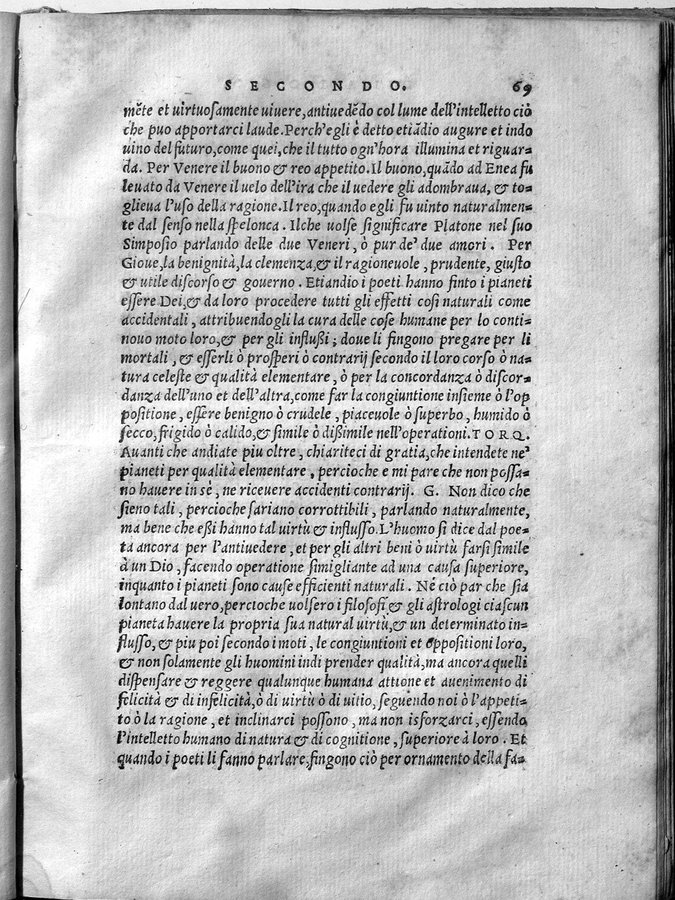 SECONDO. 69
mēte et uirtuosamente uiuere, antiuedēdo col lume dell'intelletto ciò
che puo apportarci laude. Perch'egli è detto etiādio augure et indo
uino del futuro, come quei, che il tutto ogn'hora illumina et riguar-
da. Per Venere il buono & reo appetito. Il buono, quādo ad Enea fu
leuato da Venere il uelo dell'ira che il uedere gli adombraua, & to-
glieua l'uso della ragione. Il reo, quando egli fu uinto naturalmen-
te dal senso nella spelonca. Ilche uolse significare Platone nel suo
Simposio parlando delle due Veneri, ò pur de' due amori. Per
Gioue, la benignità, la clemenza, & il ragioneuole, prudente, giusto
& utile discorso & gouerno. Etiandio i poeti hanno finto i pianeti
essere Dei, & da loro procedere tutti gli effetti cosi naturali come
accidentali, attribuendogli la cura delle cose humane per lo conti-
nouo moto loro, & per gli influßi; doue li fingono pregare per li
mortali, & esserli ò prosperi ò contrarij secondo il loro corso ò na-
tura celeste & qualità elementare, ò per la concordanza ò discor-
danza dell'uno et dell'altra, come far la congiuntione insieme ò l'op
positione, essere benigno ò crudele, piaceuole ò superbo, humido ò
secco, frigido ò calido, & simile ò dißimile nell'operationi. TORQ.
Auanti che andiate piu oltre, chiariteci di gratia, che intendete ne'
pianeti per qualità elementare, percioche e mi pare che non possa-
no hauere in sé, ne riceuere accidenti contrarij. G. Non dico che
sieno tali, percioche sariano corrottibili, parlando naturalmente,
ma bene che eßi hanno tal uirtù & influsso. L'huomo si dice dal poe-
ta ancora per l'antiuedere, et per gli altri beni ò uirtù farsi simile
à un Dio, facendo operatione simigliante ad una causa superiore,
inquanto i pianeti sono cause efficienti naturali. Né ciò par che sia
lontano dal uero, percioche uolsero i filosofi & gli astrologi ciascun
pianeta hauere la propria sua natural uirtù, & un determinato in-
flusso, & piu poi secondo i moti, le congiuntioni et oppositioni loro,
& non solamente gli huomini indi prender qualità, ma ancora quelli
dispensare & reggere qualunque humana attione et auenimento di
felicità & di infelicità, ò di uirtù ò di uitio, seguendo noi ò l'appeti-
to ò la ragione, et inclinarci possono, ma non isforzarci, essendo
l'intelletto humano di natura & di cognitione, superiore à loro. Et
quando i poeti li fanno parlare, fingono ciò per ornamento della fa-